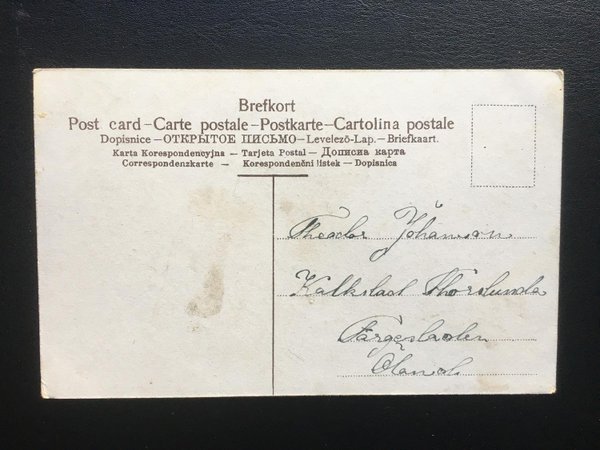 Brefkort
Post card – Carte postale – Postkarte – Cartolina postale
Dopisnice – ОТКРЫТОЕ ПИСЬМО – Levelező-Lap. – Briefkaart.
Karta Korespondencyjna – Tarjeta Postal – Дописна карта
Correspondenzkarte – Korespondenčni listek – Dopisnica
Theodor Johanson
Kalkstad Thorslunda
Färgestaden
Öland.